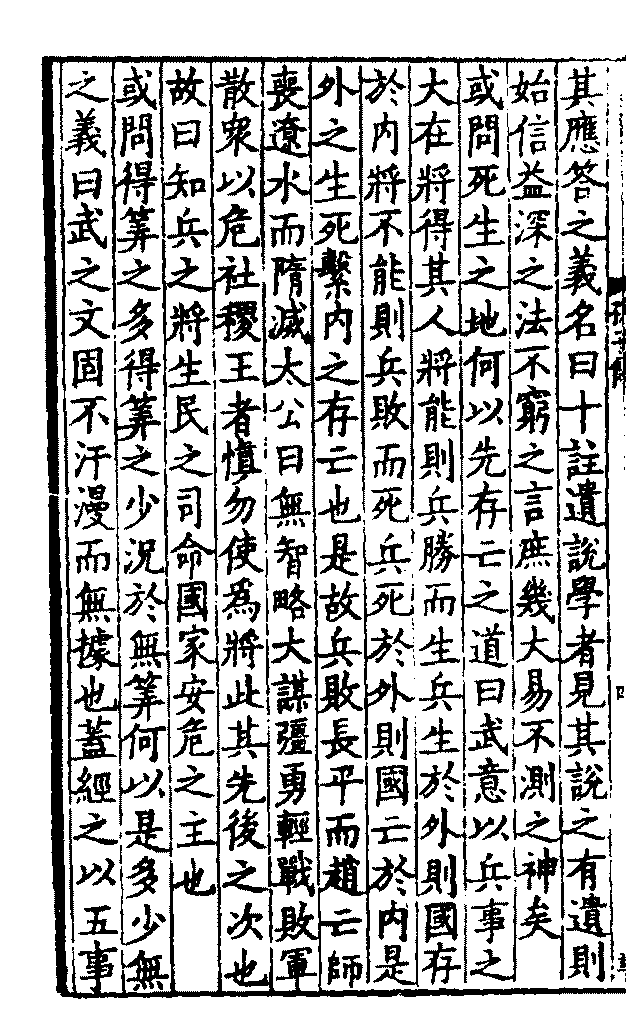 其應答之義名曰十註遺說學者見其說之有遺則
始信益深之法不窮之言庶幾大易不測之神矣
或問死生之地何以先存亡之道曰武意以兵事之
大在將得其人將能則兵勝而生兵生於外則國存
於內將不能則兵敗而死兵死於外則國亡於內是
外之生死繫內之存亡也是故兵敗長平而趙亡師
喪遼水而隋滅太公曰無智略大謀彊勇輕戰敗軍
散衆以危社稷王者慎勿使爲將此其先後之次也
故曰知兵之將生民之司命國家安危之主也
或問得筭之多得筭之少況於無筭何以是多少無
之義曰武之文固不汗漫而無據也蓋經之以五事